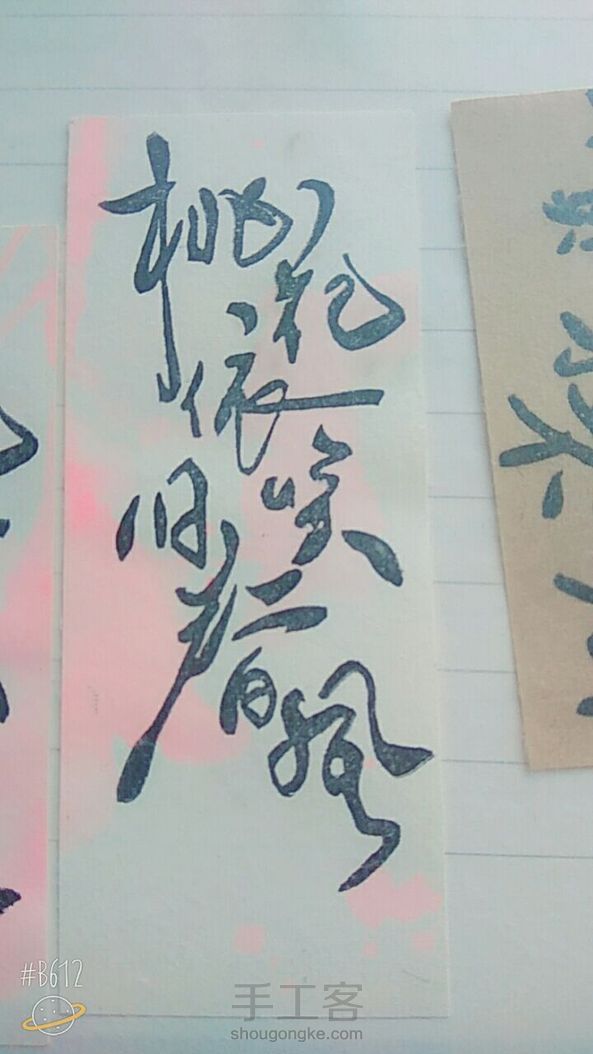 桃花
依旧笑
春風
#B612
手工客
shougongke.com